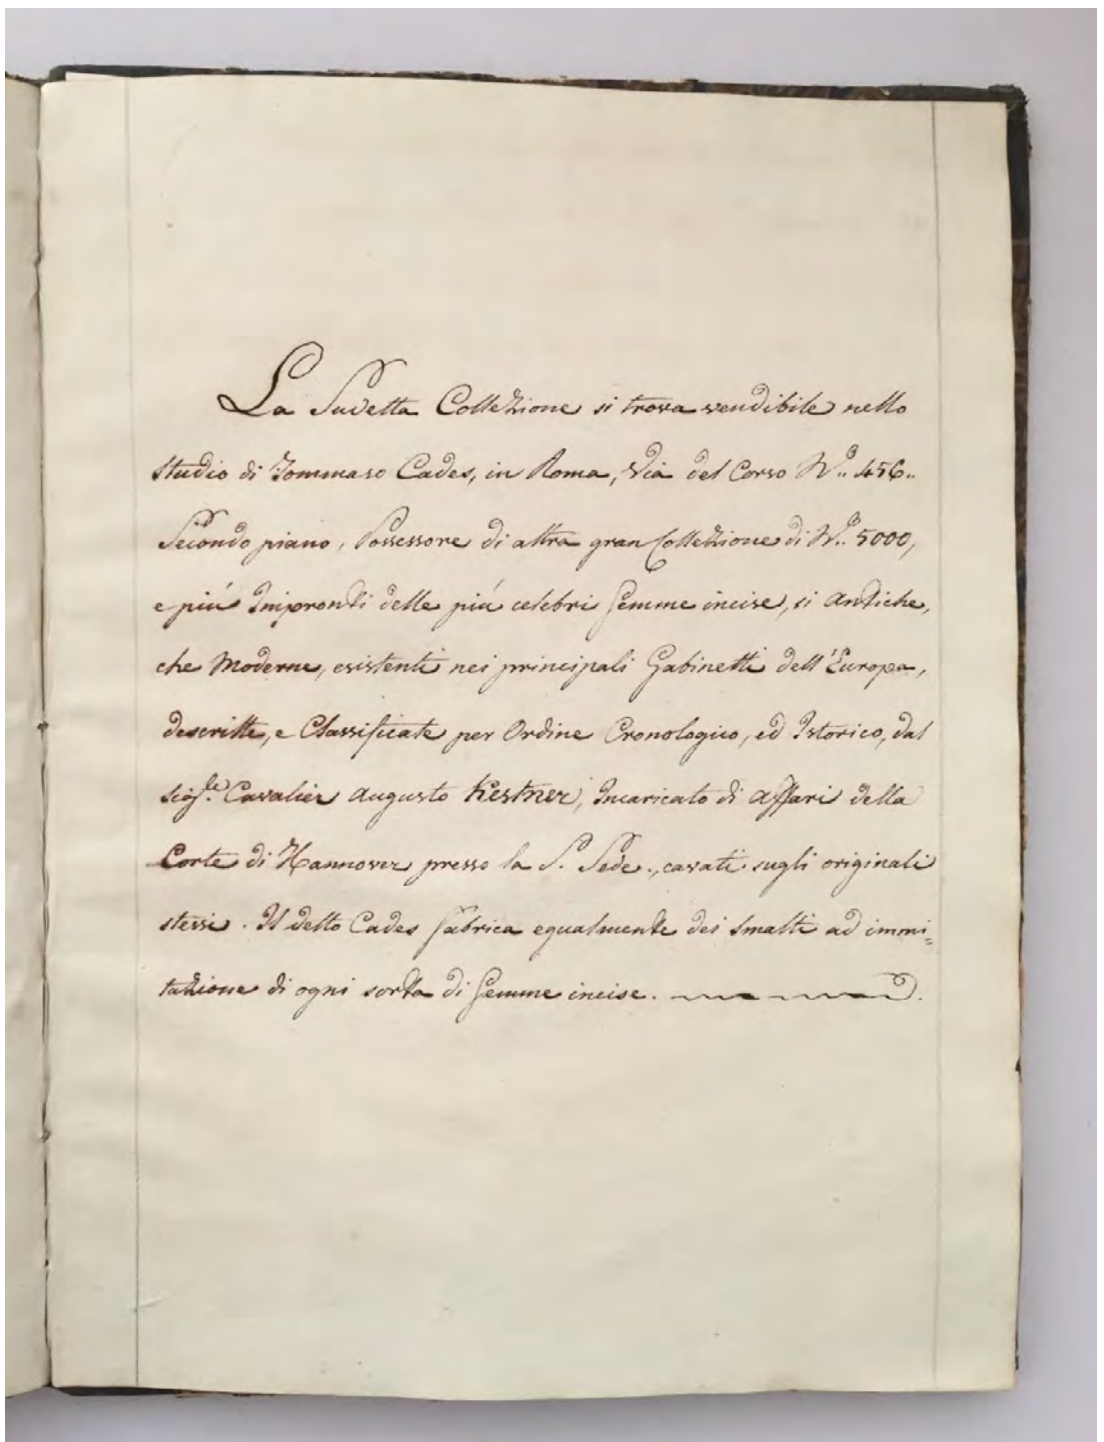 La Sudetta Collezione si trova vendibile nello
studio di Tommaso Cades, in Roma, Via del Corso N.º 456..
Secondo piano, Possessore di altra gran Collezione di N.º 5000,
e piú Impronti delle piú celebri Gemme incise, si Antiche,
che Moderne, esistenti nei principali Gabinetti dell'Europa,
descritte, e Classificate per Ordine Cronologico, ed Istorico, dal
Sig.le Cavalier Augusto Kestner, Incaricato di Affari della
Corte di Hannover presso la S. Sede., cavati sugli originali
stessi. Il detto Cades fabrica egualmente dei Smalti ad immi=
tazione di ogni sorta di Gemme incise.